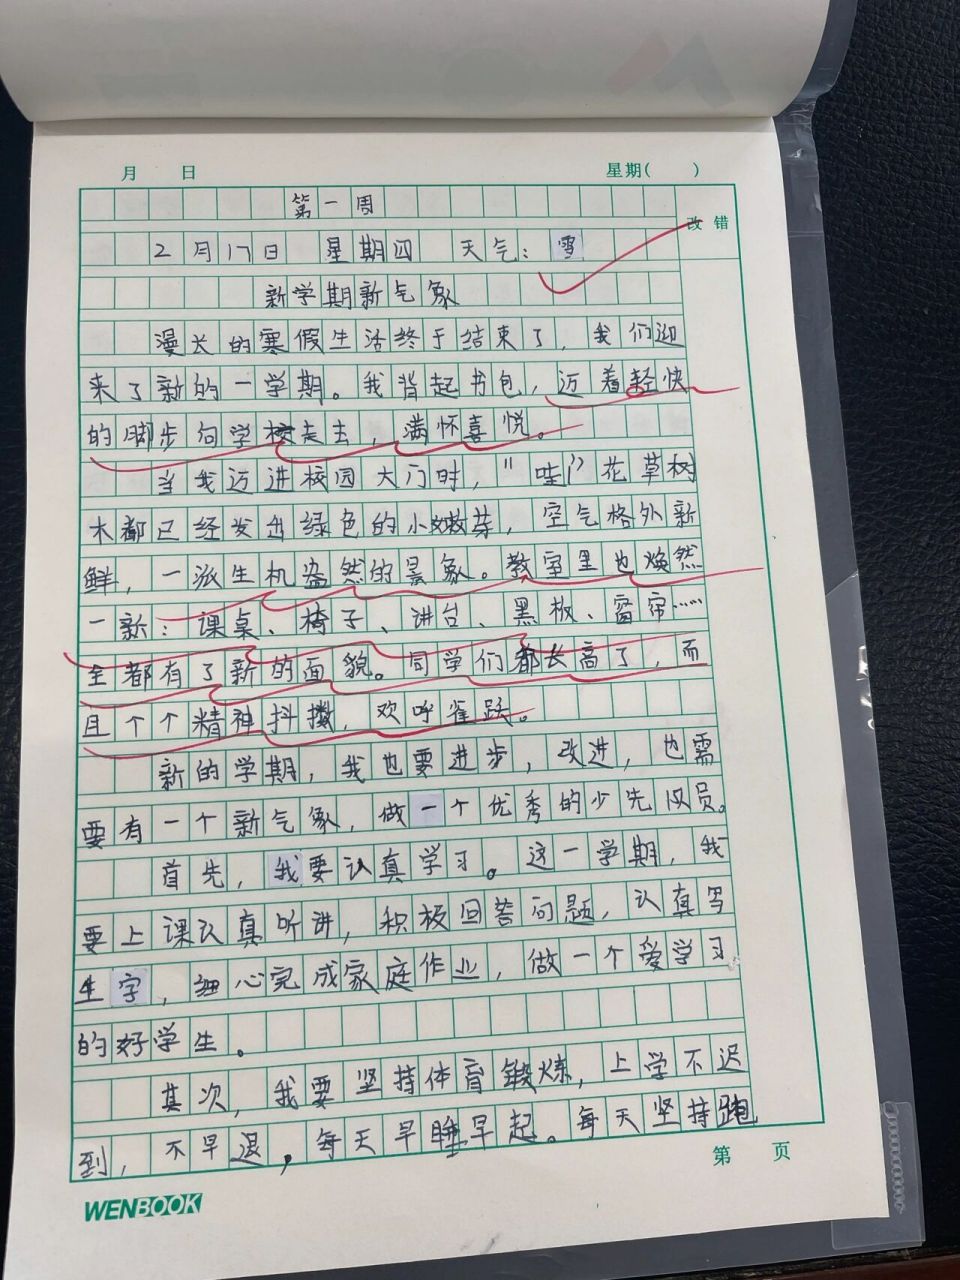 月 日 星期( )
第一周
改错
2月17日 星期四 天气：雪
新学期新气象
漫长的寒假生活终于结束了，我们迎
来了新的一学期。我背起书包，迈着轻快
的脚步向学校走去，满怀喜悦。
当我迈进校园大门时，"哇！"花草树
木都已经发出绿色的小嫩芽，空气格外新
鲜，一派生机盎然的景象。教室里也焕然
一新：课桌、椅子、讲台、黑板、窗帘……
全都有了新的面貌。同学们都长高了，而
且个个精神抖擞，欢呼雀跃。
新的学期，我也要进步，改进，也需
要有一个新气象，做一个优秀的少先队员。
首先，我要认真学习。这一学期，我
要上课认真听讲，积极回答问题，认真写
生字，细心完成家庭作业，做一个爱学习
的好学生。
其次，我要坚持体育锻炼，上学不迟
到，不早退，每天早睡早起。每天坚持跑
第 页
WENBOOK